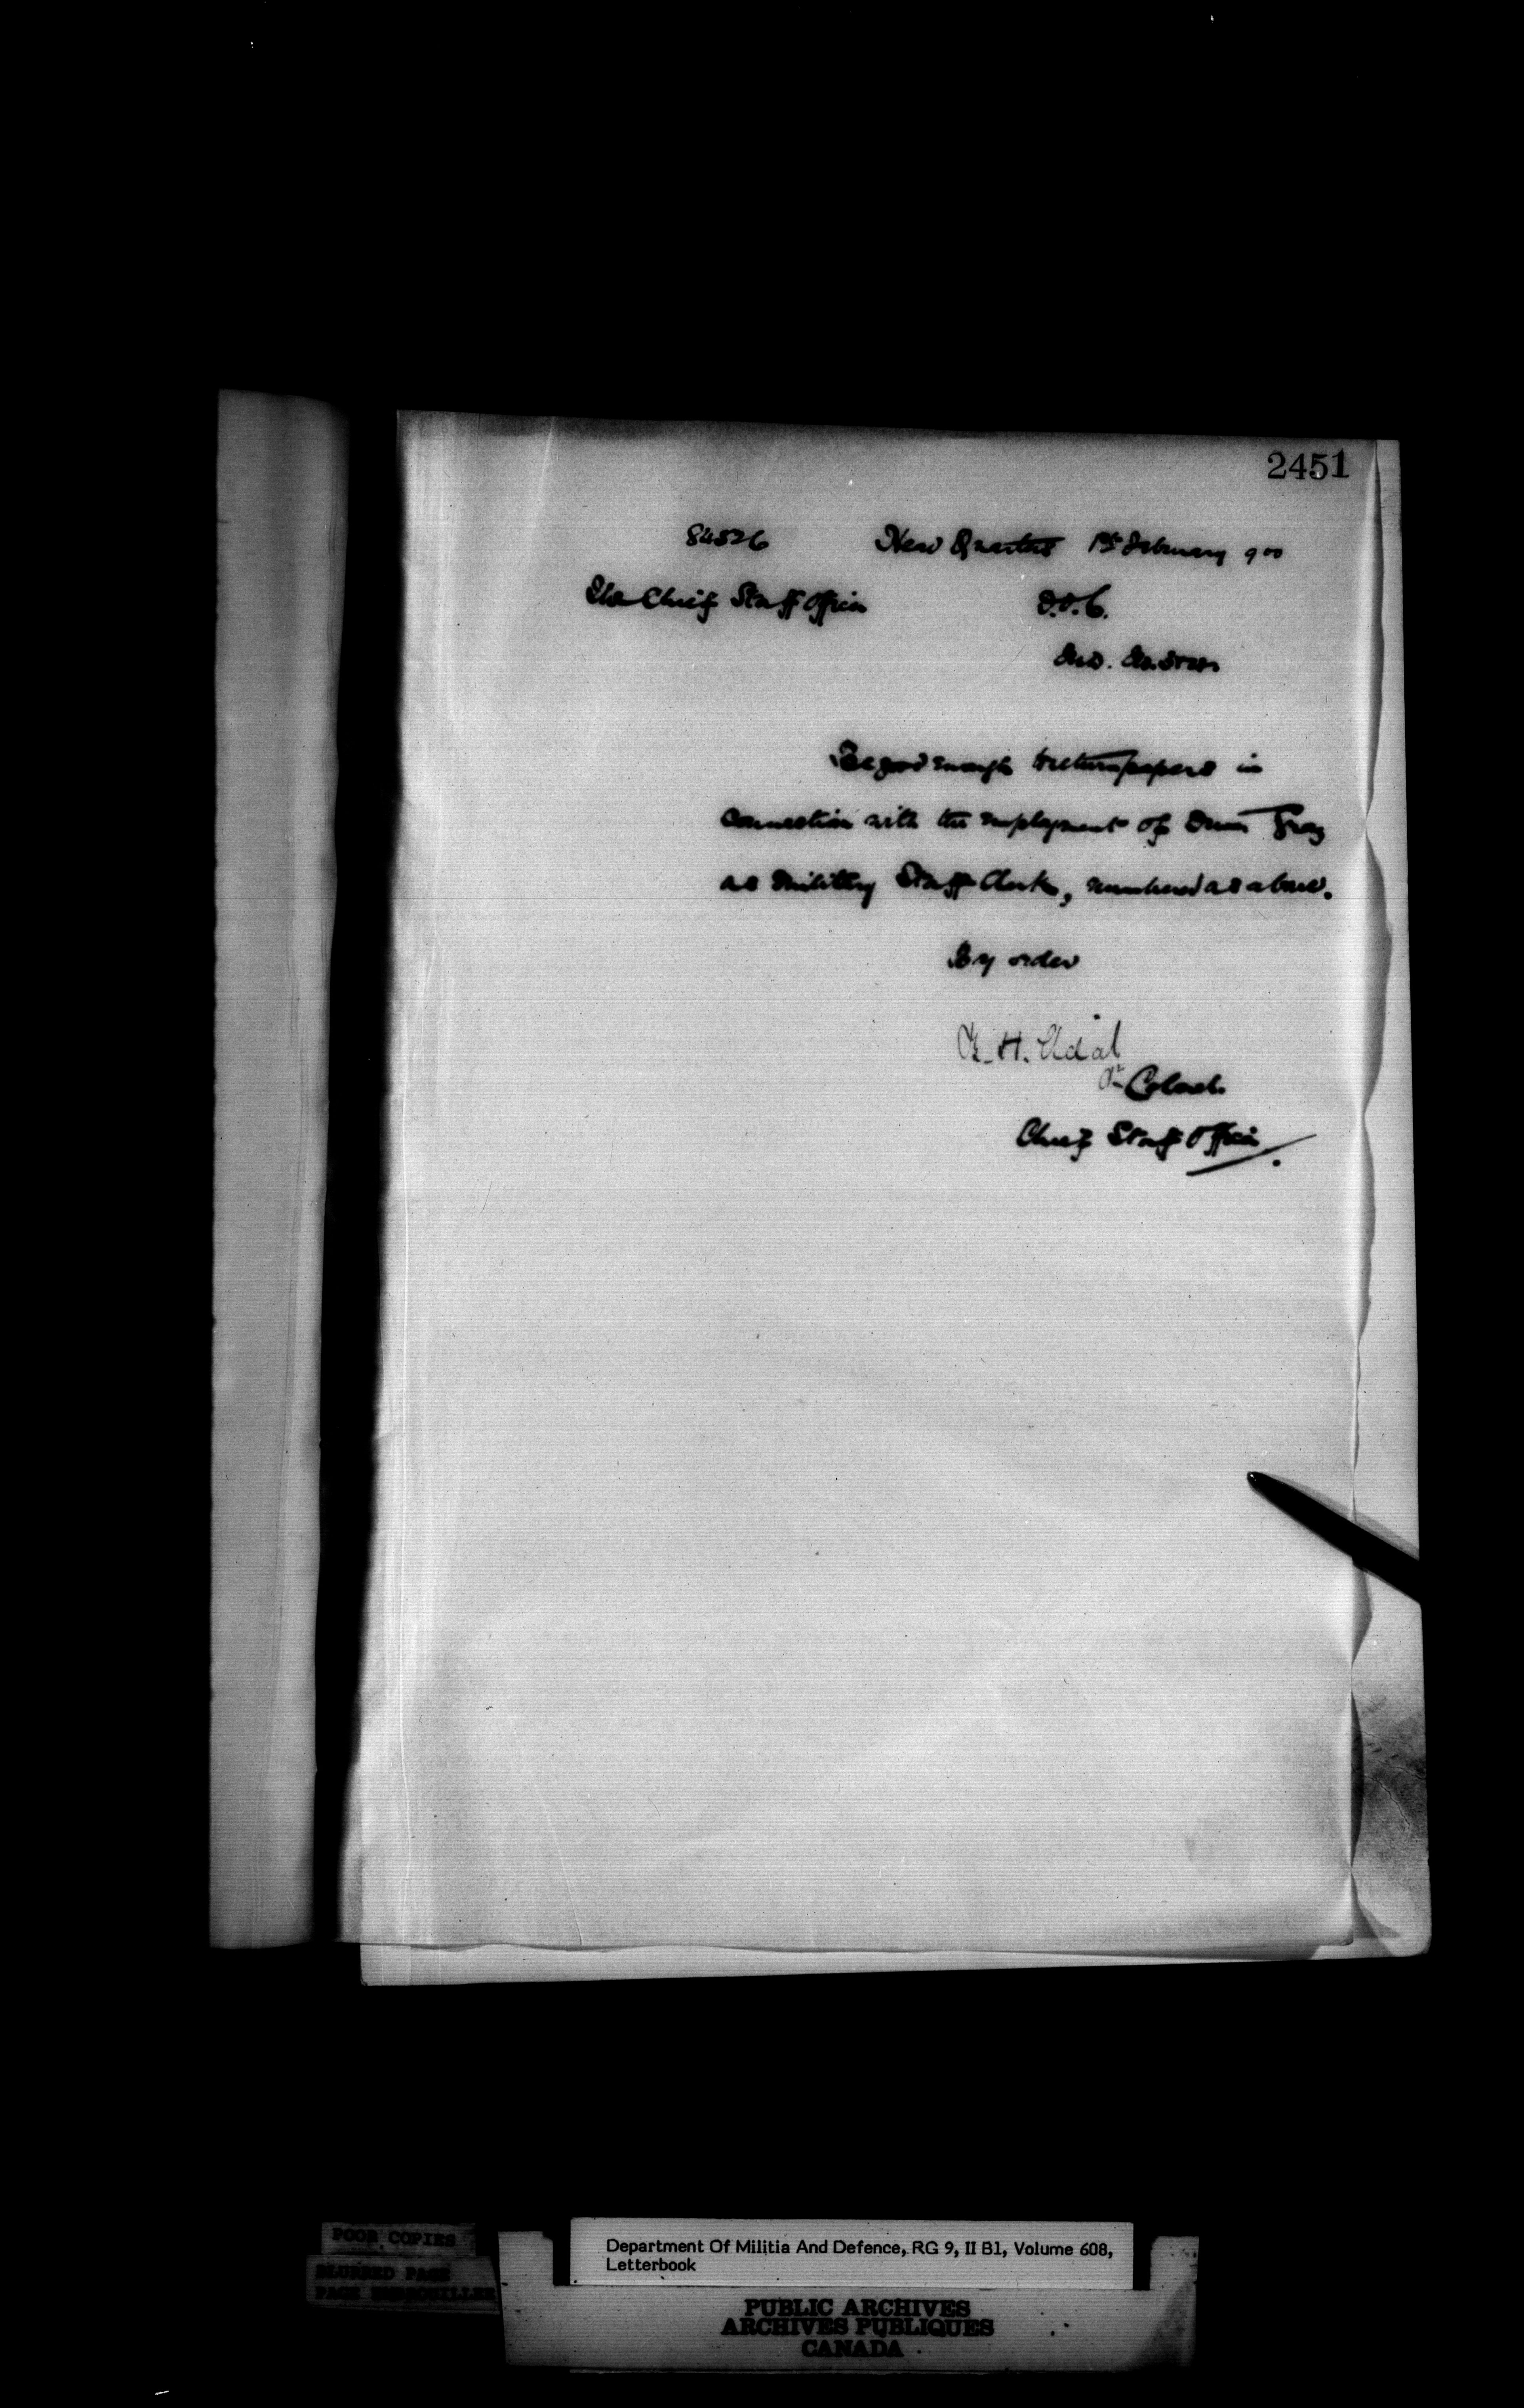 2451
84526 Head Quarters 1st February 900
The Chief Staff Officer D.O.C.
Be good enough to return papers in
connection with the employment of Gray
as Military Staff Clerk, numbered as above.
By order
H. Vidal
Colonel.
Chief Staff Officer.
POOR COPIES
Department Of Militia And Defence, RG 9, II B1, Volume 608,
Letterbook
BLURRED PAGE
PAGE
PUBLIC ARCHIVES
ARCHIVES PUBLIQUES
CANADA